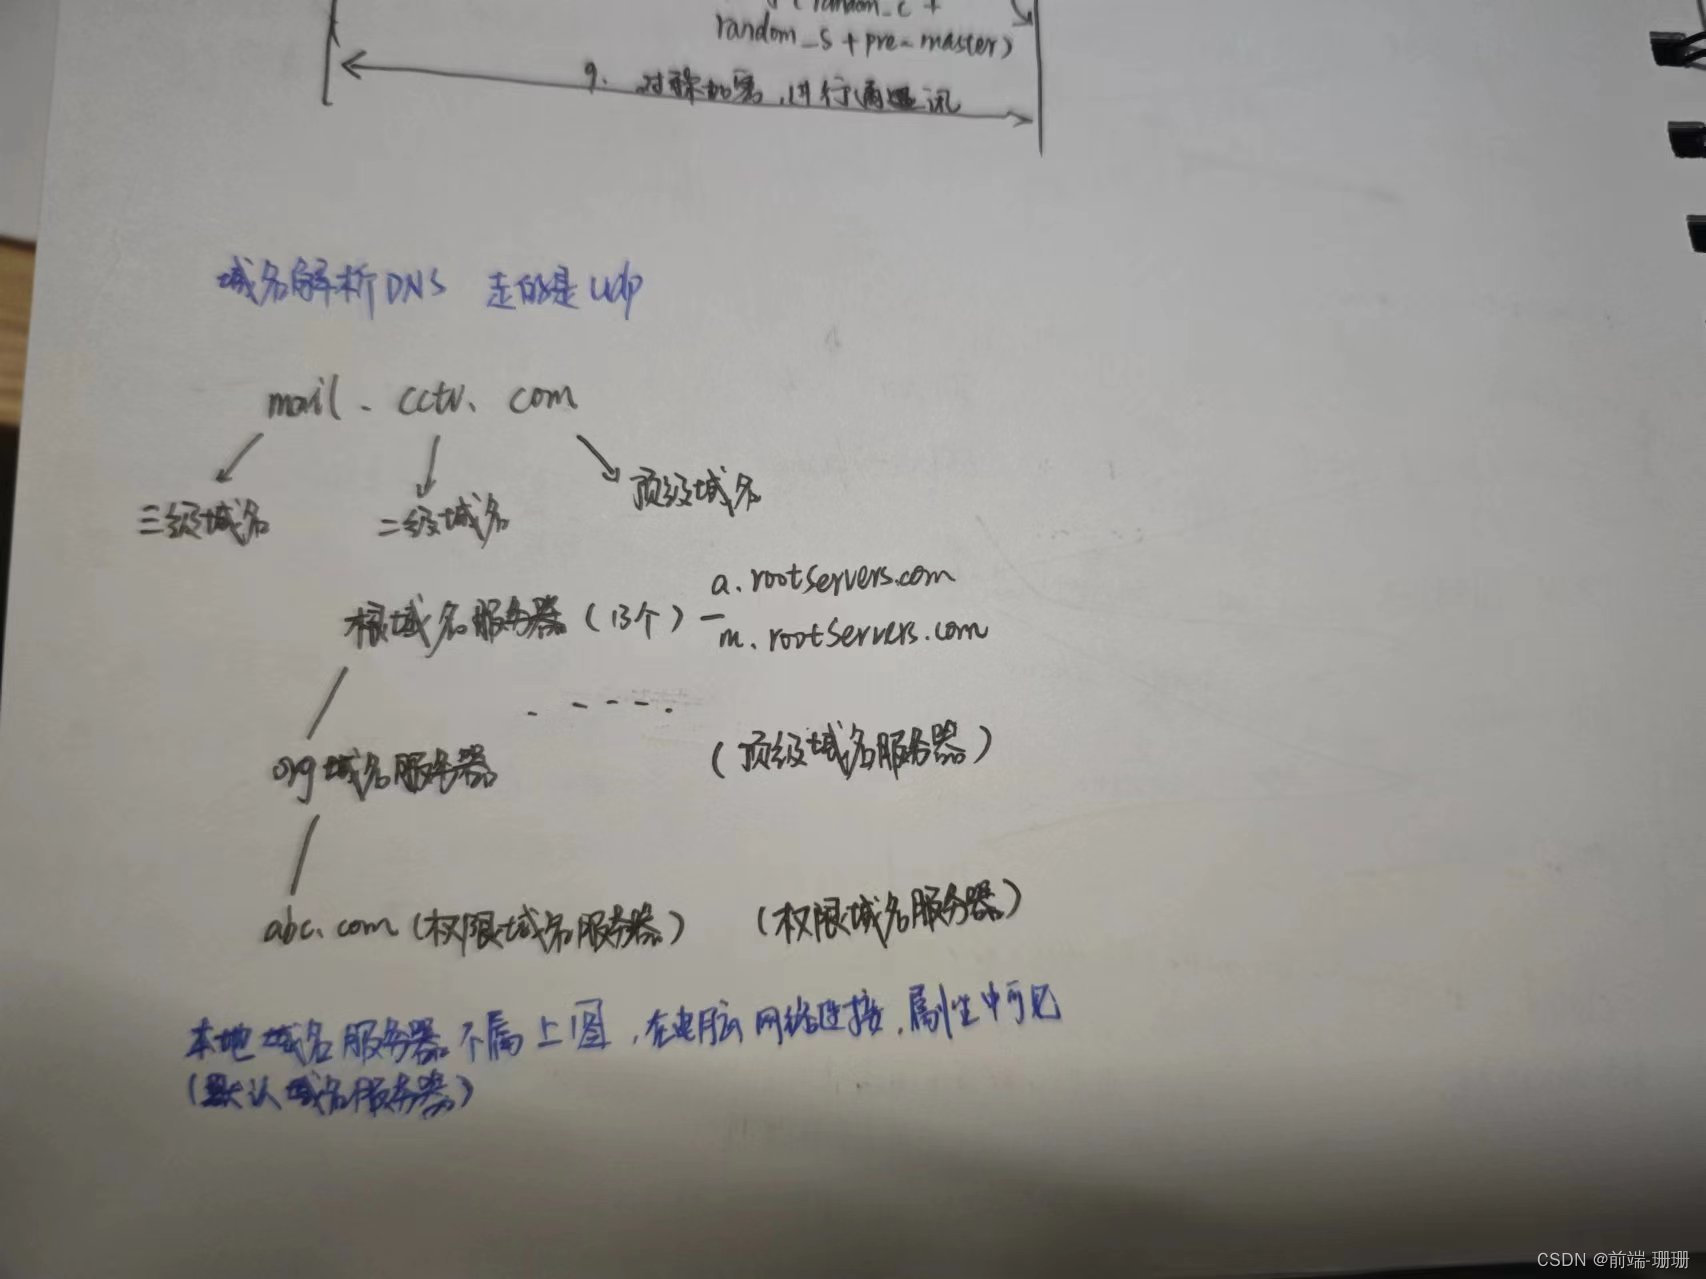 (random_c +
random_s + pre-master)
9. 对称加密,进行通讯
域名解析DNS 走的是udp
mail. cctv. com
三级域名 二级域名 顶级域名
a.rootservers.com
根域名服务器(13个)—
m.rootservers.com
org域名服务器 (顶级域名服务器)
abc.com(权限域名服务器) (权限域名服务器)
本地域名服务器不属上图,在电脑网络连接,属性中可见
(默认域名服务器)
CSDN @前端-珊珊